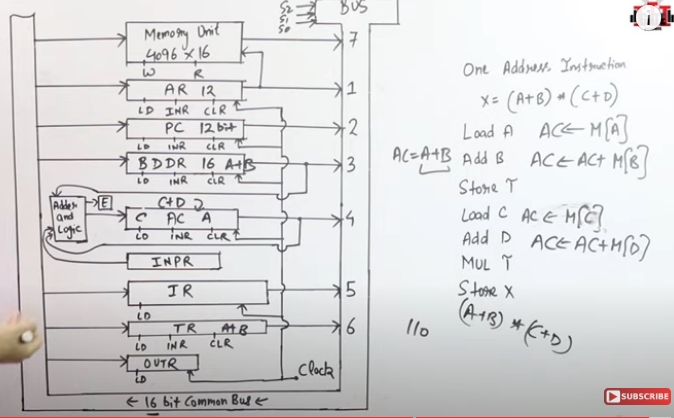 S2
S1
S0
BUS
Memory Unit
4096 × 16
W R
7
AR 12
LD INR CLR
1
PC 12bit
LD INR CLR
2
B DDR 16 A+B
LD INR CLR
3
Adder
and
Logic
E
C+D
C AC A
LD INR CLR
4
INPR
IR
LD
5
TR A+B
LD INR CLR
6
OUTR
LD
Clock
← 16 bit Common Bus ←
One Address Instruction
X= (A+B) * (C+D)
Load A AC← M[A]
AC=A+B Add B AC← AC+ M[B]
Store T
Load C AC ← M[C]
Add D AC← AC+M[D]
MUL T
Store X
(A+B) * (C+D)
SUBSCRIBE